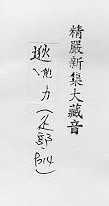 精嚴新集大藏音
逖 他力(辵部, P14)